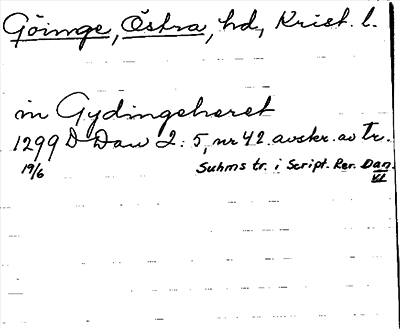 Göinge, Östra, hd, Krist. l.
in Gydingeheret
1299 D Dan 2:5, nr 42. avskr. av Tr.
19/6 Suhms tr. i Script. Rer. Dan. VI